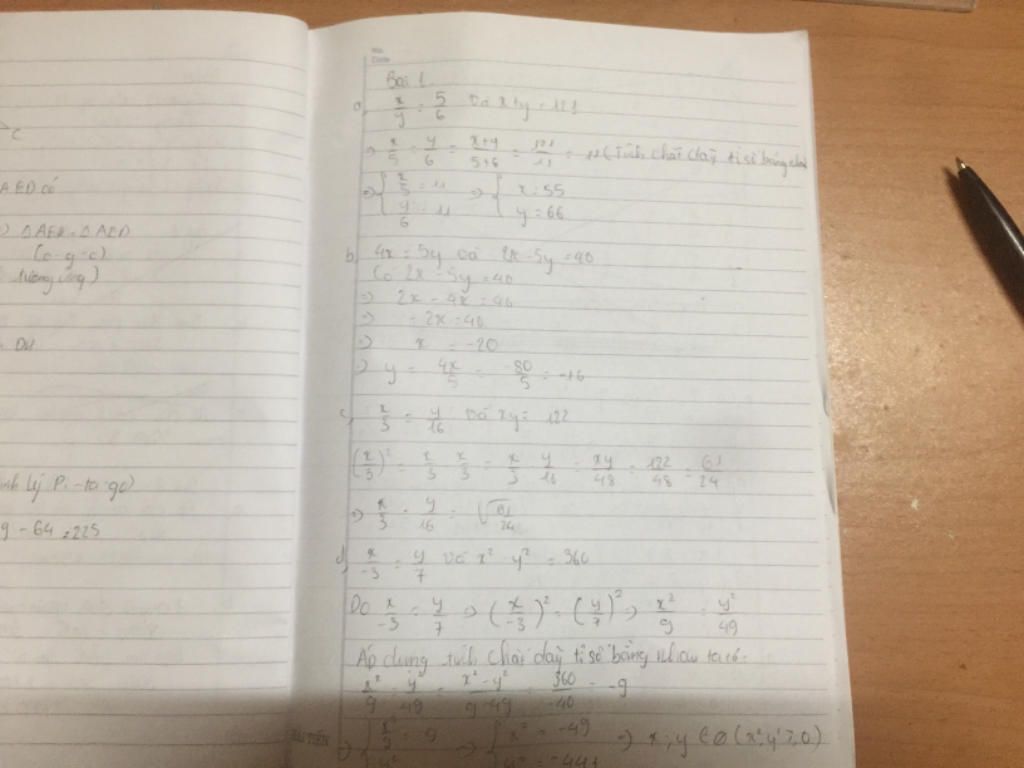 C
AED có
ΔAEK = ΔAED
(c-g-c)
tương ứng)
lý Pi-ta-go)
9 - 64 = 225
Bài 1
a, x/y = 5/6 và x+y = 121
=> x/5 = y/6 = (x+y)/(5+6) = 121/11 = 11 (Tính chất dãy tỉ số bằng nhau
=> { x/5 = 11 => { x = 55
y/6 = 11 y = 66
b, 4x = 5y và 2x - 5y = 40
Có 2x - 5y = 40
=> 2x - 4x = 40
=> -2x = 40
=> x = -20
=> y = 4x/5 = -80/5 = -16
c, x/3 = y/16 và xy = 122
(x/3)² = x/3 . x/3 = x/3 . y/16 = xy/48 = 122/48 = 61/24
=> x/3 = y/16 = √(61/24)
d, x/-3 = y/7 và x² - y² = 360
Do x/-3 = y/7 => (x/-3)² = (y/7)² => x²/9 = y²/49
Áp dụng tính chất dãy tỉ số bằng nhau ta có:
x²/9 = y/49 = (x² - y²)/(9-49) = 360/-40 = -9
=> { => { x² = -49 => x; y ∈ ∅ (x²; y² ≥ 0)
y² y² = -441